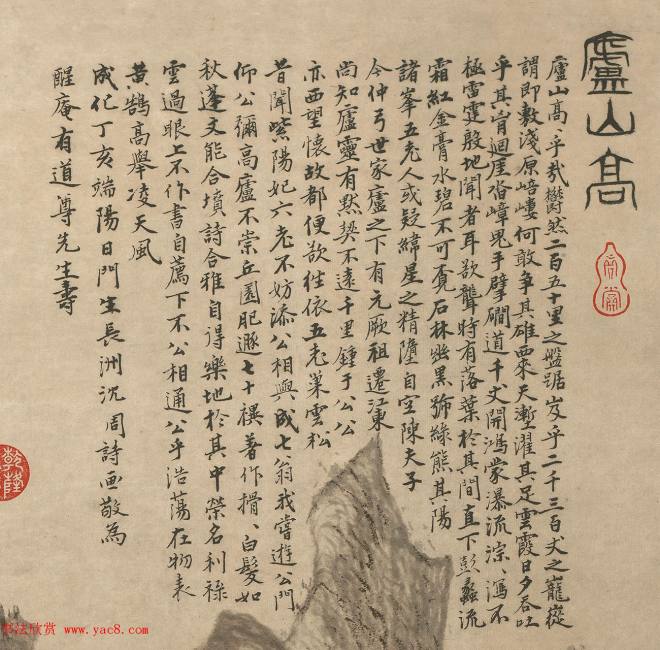 廬山高
廬山高、高乎哉鬱然二百五十里之盤踞岌乎二千三百丈之巃嵷
謂即敷淺原嵝嶁何敢爭其雄西來天塹濯其足雲霞日夕吞吐
乎其胷迴崖沓嶂鬼手擘磵道千丈開鴻蒙瀑流淙、瀉不
極雷霆殷地聞者耳欲聾時有落葉於其間直下彭蠡流
霜紅金膏水碧不可覓石林幽黑號綠熊其陽
諸峯五老人或疑緯星之精墮自空陳夫子
今仲弓世家廬之下有元厥祖遷江東
尚知廬靈有默契不遠千里鍾于公公
亦西望懷故都便欲往依五老巢雲松
昔聞紫陽妃六老不妨添公相與成七翁我嘗遊公門
仰公彌高廬不崇丘園肥遯七十禩著作揹、白髮如
秋蓬文能合墳詩合雅自得樂地於其中榮名利祿
雲過眼上不作書自薦下不公相通公乎浩蕩在物表
黄鵠高舉凌天風
成化丁亥端陽日門生長洲沈周詩畫敬為
醒庵有道尊先生壽
乾隆
书法欣赏 www.yac8.com